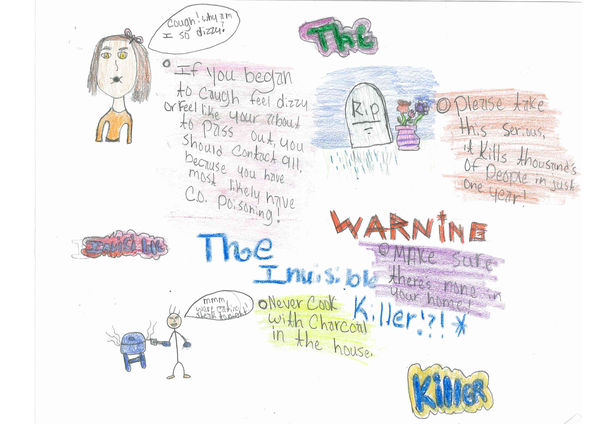 Cough! Why am
I so dizzy?
The
If you began
to cough feel dizzy
or Feel like your about
to pass out, you
should contact 911,
because you have
most likely have
C.O. Poisoning!
R.I.P
Please take
this serious,
it Kills thousands
of People in just
one year!
WARNING
Invisible
The
Invisible
Killer!?!*
MAKE sure
theres none in
your home!
mmm
steak tonight!
Never Cook
with Charcoal
in the house.
Killer